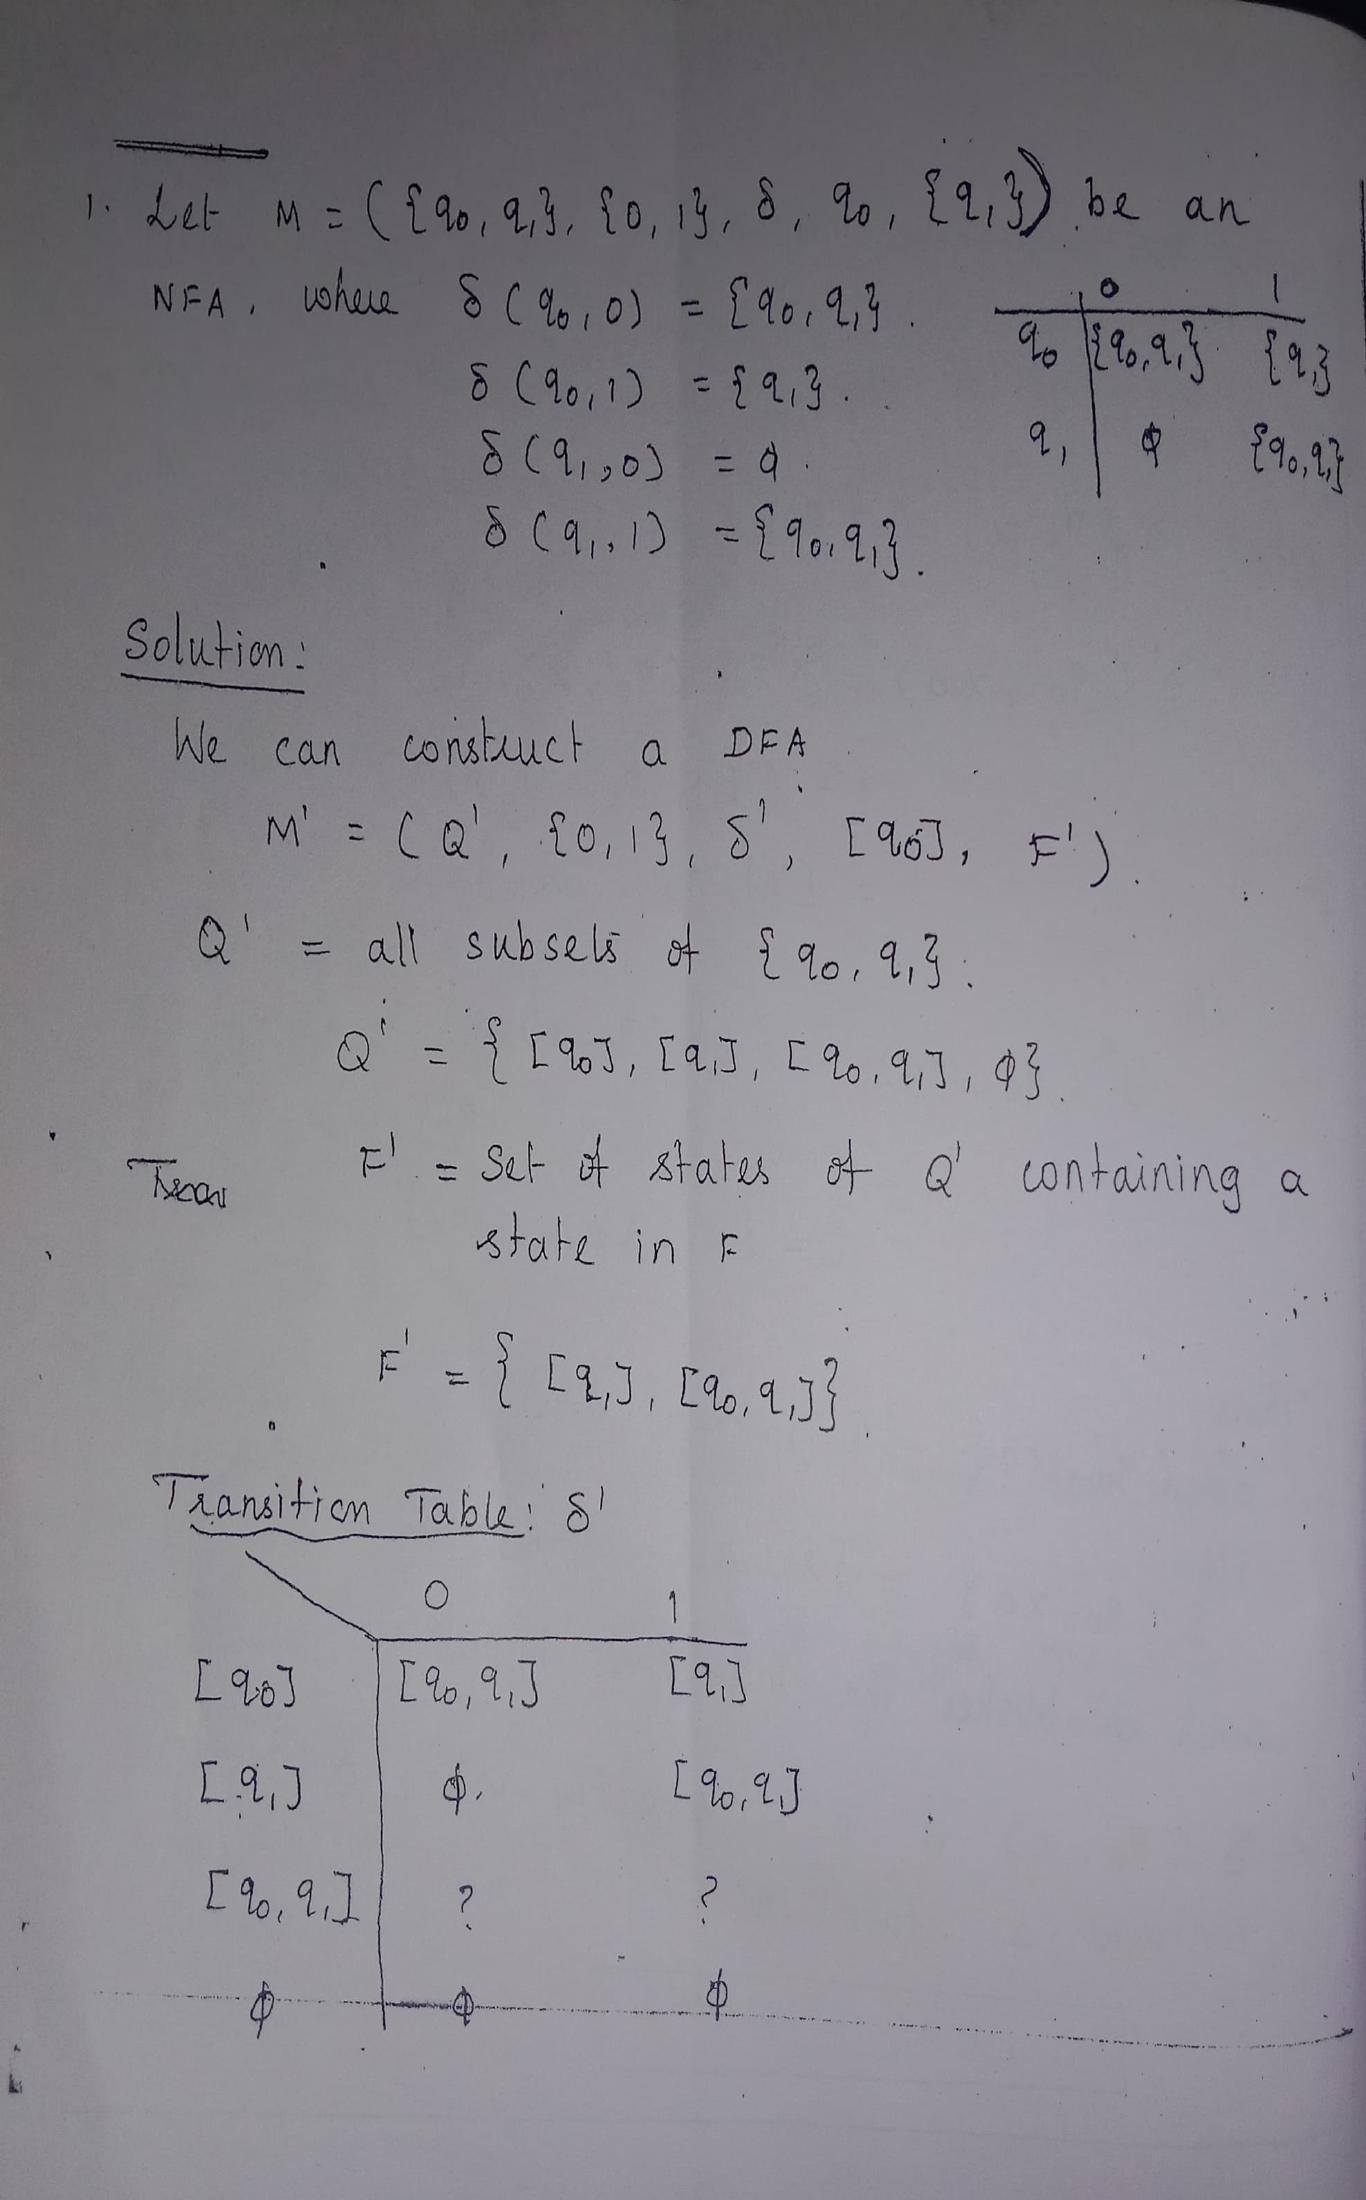 1. Let M = ({q₀, q₁}, {0, 1}, δ, q₀, {q₁}) be an
NFA, where δ(q₀, 0) = {q₀, q₁}.
δ(q₀, 1) = {q₁}.
δ(q₁, 0) = ϕ.
δ(q₁, 1) = {q₀, q₁}.
0 1
q₀ {q₀, q₁} {q₁}
q₁ ϕ {q₀, q₁}
Solution:
We can construct a DFA
M' = (Q', {0, 1}, δ', [q₀], F').
Q' = all subsets of {q₀, q₁}.
Q' = {[q₀], [q₁], [q₀, q₁], ϕ}.
F' = Set of states of Q' containing a
state in F
F' = {[q₁], [q₀, q₁]}.
Transition Table: δ'
0 1
[q₀] [q₀, q₁] [q₁]
[q₁] ϕ. [q₀, q₁]
[q₀, q₁] ? ?
ϕ ϕ ϕ